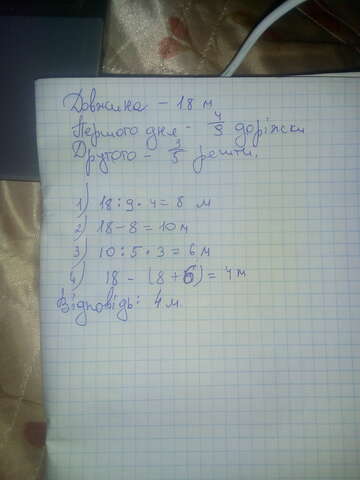 Довжина – 18 м
Першого дня – 4/9 доріжки
Другого – 3/5 решти.
1) 18:9·4=8 м
2) 18-8=10м
3) 10:5·3=6м
4) 18 - (8+6)=4м
Відповідь: 4м.